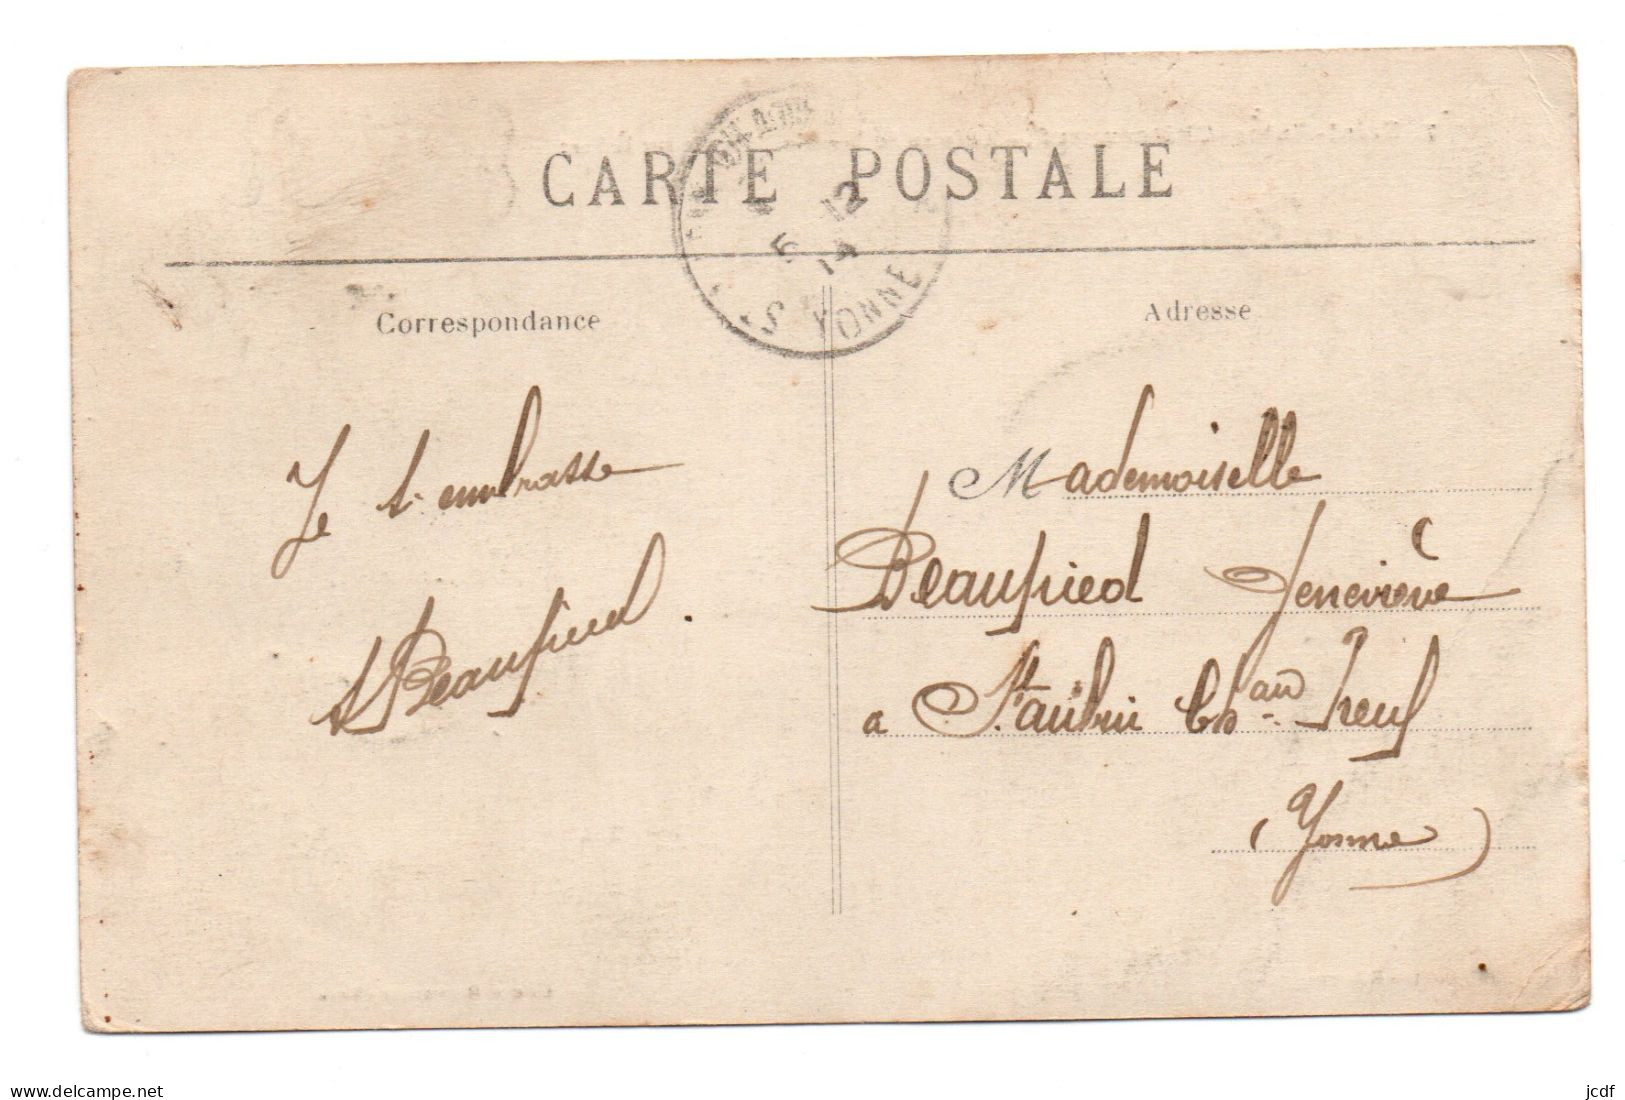 CARTE POSTALE
6 12
14
YONNE
Correspondance
Adresse
Je t'embrasse
Beaufied.
Mademoiselle
Beaufied Geneviève
a St aubin Chau Neuf
(Yonne)
delcampe.net
jcdf